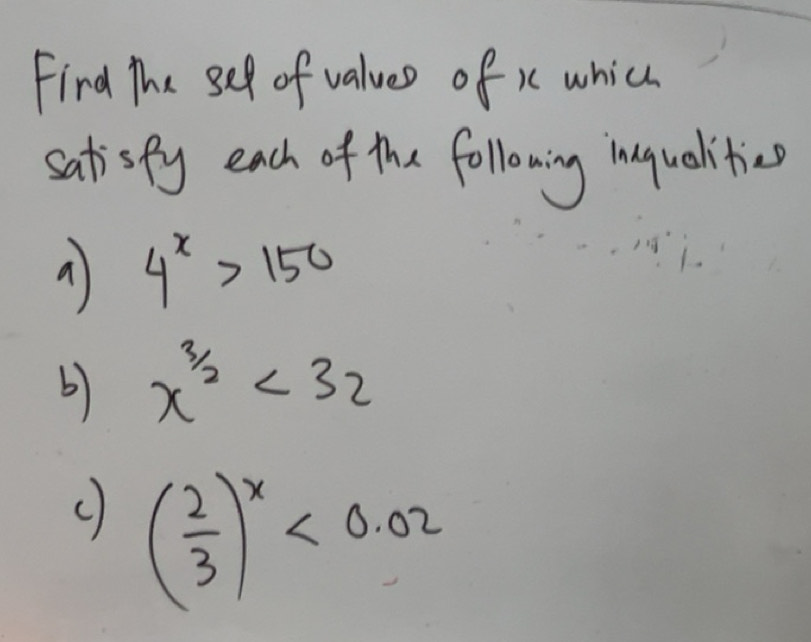 Find the set of values of x which
satisfy each of the following inequalities
a) 4^x > 150
b) x^{3/2} < 32
c) (2/3)^x < 0.02